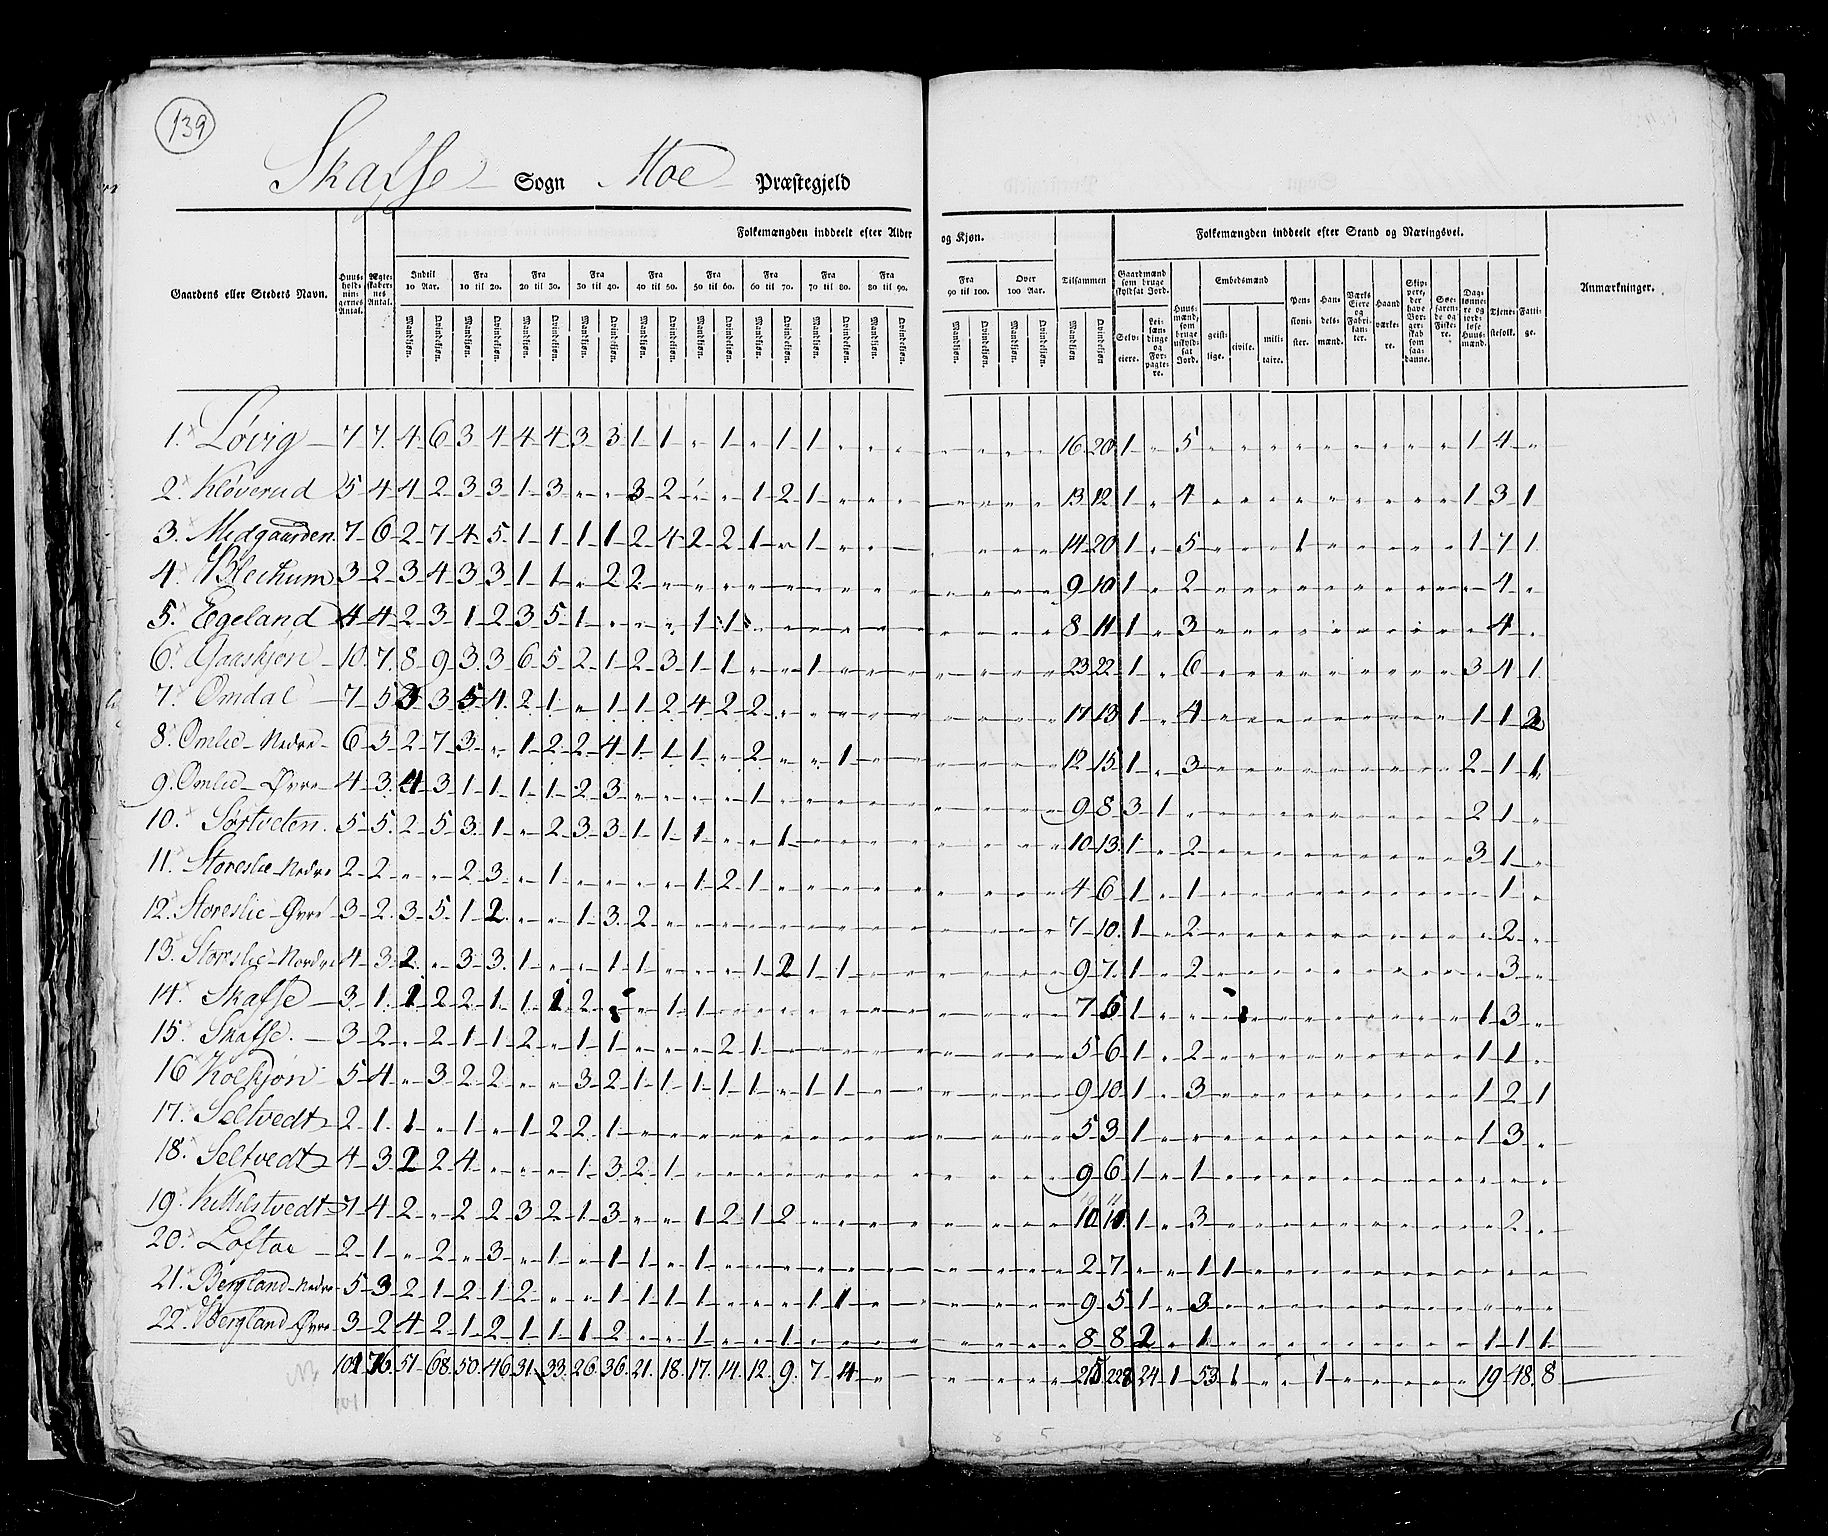 139
Skafse Sogn Moe Præstegjeld
Gaardens eller Stedets Navn.
Huusholdningernes Antal.
Ægteskabernes Antal.
Folkemængden inddeelt efter Alder og Kjøn.
Indtil 10 Aar. Fra 10 til 20. Fra 20 til 30. Fra 30 til 40. Fra 40 til 50. Fra 50 til 60. Fra 60 til 70. Fra 70 til 80. Fra 80 til 90. Fra 90 til 100. Over 100 Aar. Tilsammen
Mandkjøn. Qvindekjøn.
Folkemængden inddeelt efter Stand og Næringsvei.
Gaardmænd som bruge skyldsat Jord.
Selveiere.
Leilændinge og Forpagtere.
Huusmænd, som bruge uskyldsat Jord.
Embedsmænd
geistlige. civile. militaire.
Pensionister.
Handelsmænd.
Værks Eiere og Fabrikanter.
Haandværkere.
Skippere, der have Borgerskab som saadanne.
Søefarende og Fiskere.
Daglønnere og jordløse Huusmænd.
Tjenestefolk.
Fattige.
Anmærkninger.
1. Løvig 7 7 4 6 3 4 4 4 3 3 1 1 " 1 " 1 1 " " " " " " " 16 20 1 " 5 " " " " " " " " " 1 4 "
2. Kløverud 5 4 4 2 3 3 1 3 " " 3 2 " " 1 2 1 " " " " " " " 13 12 1 " 4 " " " " " " " " " 1 3 1
3. Midgaarden 7 6 2 7 4 5 1 1 1 1 2 4 2 2 1 " 1 " " " " " " " 14 20 1 " 5 " " " 1 " " " " " 1 7 1
4. Blechum 3 2 3 4 3 3 1 1 " 2 2 " " " " " " " " " " " " " 9 10 1 " 2 " " " " " " " " " " 4 "
5. Egeland 4 4 2 3 1 2 3 5 1 " " " 1 1 " " " " " " " " " " 8 11 1 " 3 " " " " " " " " " " 4 "
6. Gaaskjøn 10 7 8 9 3 3 6 5 2 1 2 3 1 1 " " 1 " " " " " " " 23 22 1 " 6 " " " " " " " " " 3 4 1
7. Omdal 7 5 3 3 5 1 2 1 " 1 1 2 4 2 2 " " " " " " " " " 17 13 1 " 4 " " " " " " " " " 1 1 2
8. Omlie Nedre 6 5 2 7 3 " 1 2 2 4 1 1 1 " 2 " " 1 " " " " " " 12 15 1 " 3 " " " " " " " " " 2 1 1
9. Omlie Øvre 4 3 4 3 1 1 1 1 2 3 " " " " 1 " " " " " " " " " 9 8 3 1 " " " " " " " " " " 2 1 "
10. Sørtveten 5 5 2 5 3 1 " 2 3 3 1 1 1 " " 1 " " " " " " " " 10 13 1 " 2 " " " " " " " " " 3 1 "
11. Storeslie Nedre 2 2 " " 2 3 " 1 " " " " 1 2 1 " " " " " " " " " 4 6 1 " 1 " " " " " " " " " " 1 "
12. Storeslie Øvre 3 2 3 5 1 2 " " 1 3 2 " " " " " " " " " " " " " 7 10 1 " 2 " " " " " " " " " " 2 "
13. Storslie Nordre 4 3 2 " 3 3 1 " " 1 1 " " " 1 2 1 1 " " " " " " 9 7 1 " 2 " " " " " " " " " " 3 "
14. Skafse 3 1 1 2 2 1 1 1 2 " " 1 1 " " " " " " " " " " " 7 6 1 " " " " " " " " " " " 1 3 "
15. Skafse. 3 2 " 2 1 1 2 " 1 1 " " " 2 1 " " " " " " " " " 5 6 1 " 2 " " " " " " " " " 1 1 "
16 Kolskjøn 5 4 " 3 2 2 " " 3 2 1 1 1 1 1 " 1 1 " " " " " " 9 10 1 " 3 " " " " " " " " " 1 2 1
17. Seltvedt 2 1 1 " 1 " 1 2 2 1 " " " " " " " " " " " " " " 5 3 1 " " " " " " " " " " " 1 3 "
18. Seltvedt 4 3 2 2 4 " " " 1 3 2 1 " " " " " " " " " " " " 9 6 1 " 1 " " " " " " " " " " " "
19. Kittilstvedt 7 4 2 " 2 2 3 2 1 3 " " 1 2 1 2 " " " " " " " " 10 11 1 " 3 " " " " " " " " " " 2 "
20. Loftoe 2 1 " 2 " 3 " 1 " 1 1 " 1 " " " " " " " " " " " 2 7 " " 1 1 " " " " " " " " " " "
21. Bergland Nedre 5 3 2 1 2 1 2 " " 1 1 1 1 " " " 1 1 " " " " " " 9 5 1 " 3 " " " " " " " " " " " "
22. Bergland Øvre 3 2 4 2 1 2 1 1 1 2 " " 1 " " 1 " " " " " " " " 8 8 2 " 1 " " " " " " " " " 1 1 1
101 76 51 68 50 46 31 33 26 36 21 18 17 14 12 9 7 4 " " " " " " 215 228 24 1 53 1 " " 1 " " " " " 19 48 8
NB
101